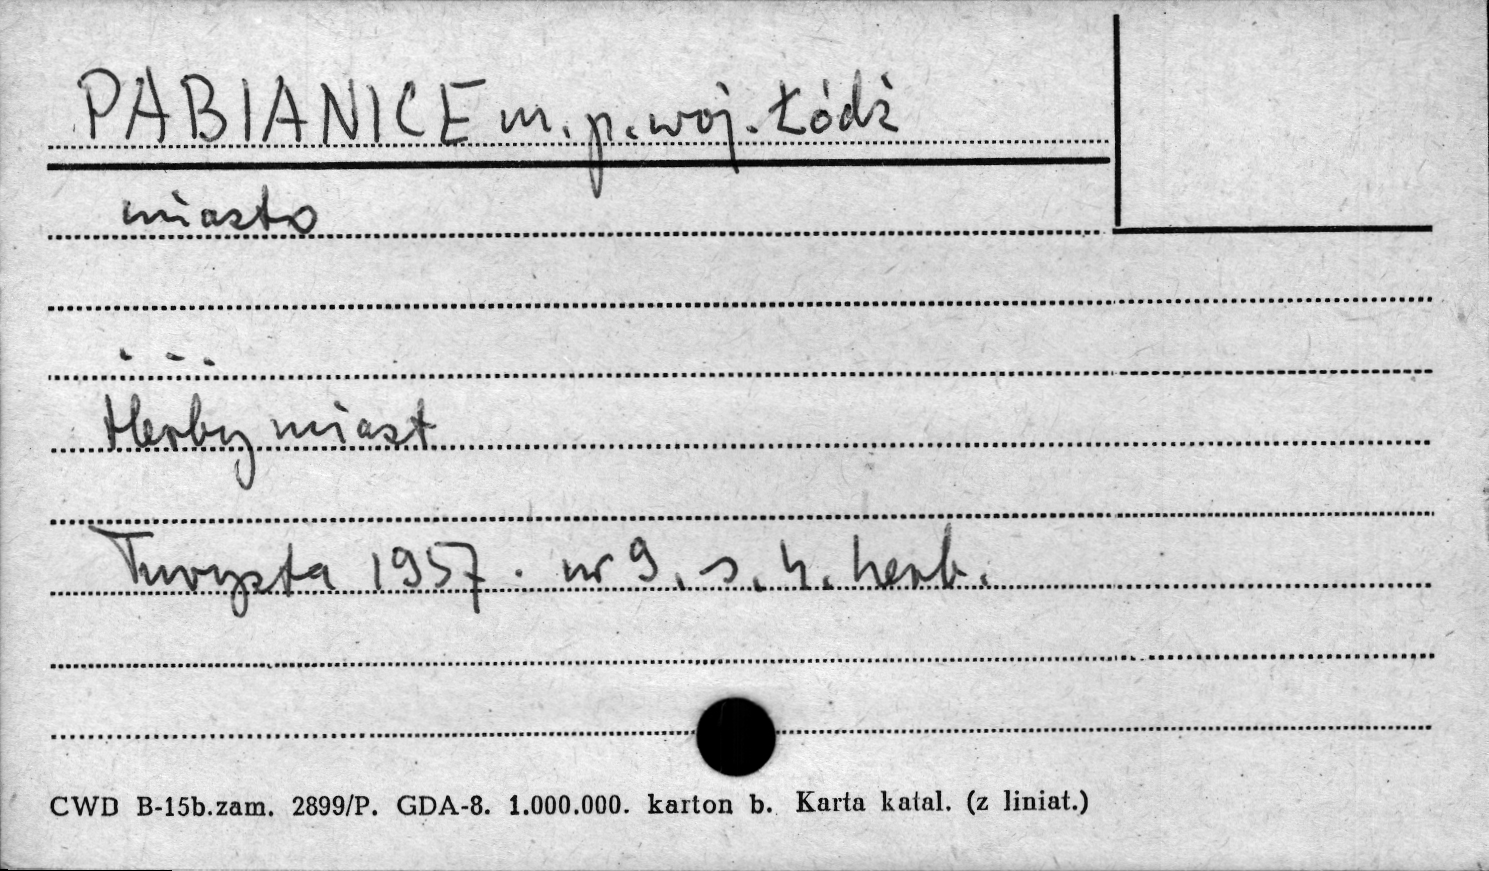 PABIANICE m. p. woj. Łódź
miasto
...
Herby miast
Turysta 1957. nr 9. s. 4. herb.
CWD B-15b.zam. 2899/P. GDA-8. 1.000.000. karton b. Karta katal. (z liniat.)